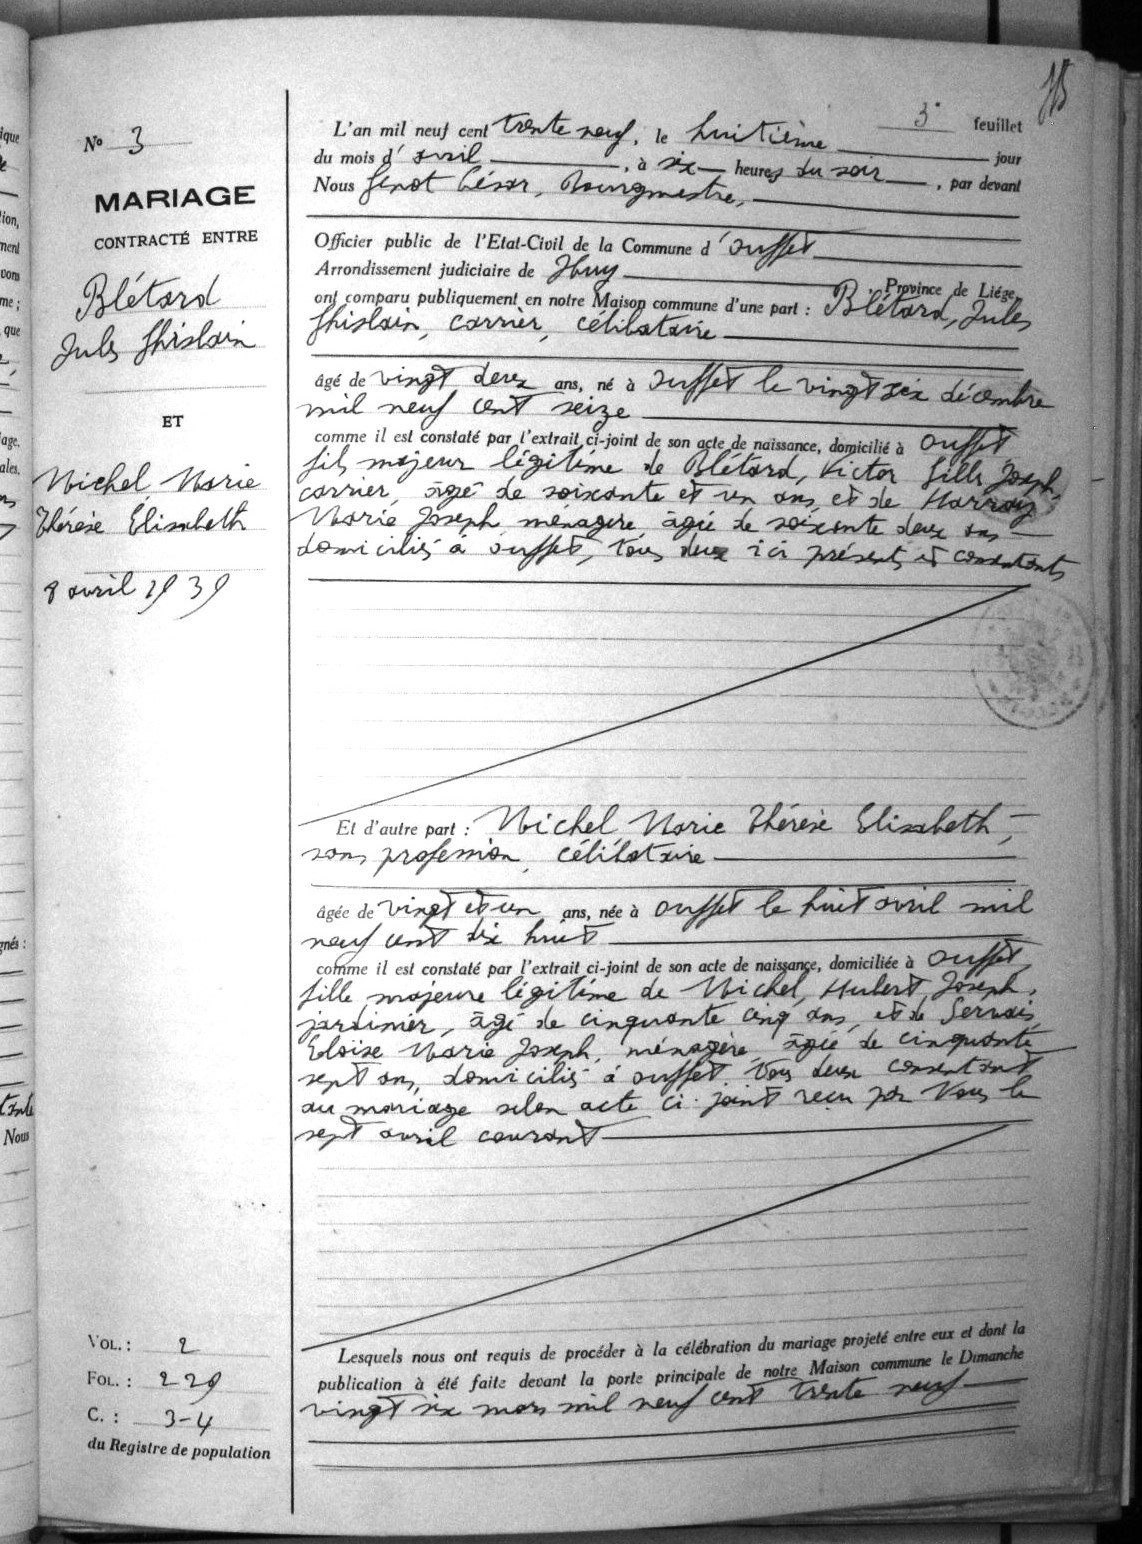 3e feuillet
N° 3
MARIAGE
CONTRACTÉ ENTRE
Blétard
Jules Ghislain
ET
Michel Marie
Thérèse Elisabeth
8 avril 1939
VOL. : 2
FOL. : 229
C. : 3-4
du Registre de population
L'an mil neuf cent trente neuf, le huitième jour
du mois d' avril, à six heures du soir, par devant
Nous Genot César, Bourgmestre,
Officier public de l'Etat-Civil de la Commune d' Ouffet
Arrondissement judiciaire de Huy Province de Liége,
ont comparu publiquement en notre Maison commune d'une part : Blétard, Jules
Ghislain, carrier, célibataire
âgé de vingt deux ans, né à Ouffet le vingt six décembre
mil neuf cent seize
comme il est constaté par l'extrait ci-joint de son acte de naissance, domicilié à Ouffet
fils majeur légitime de Blétard, Victor Gilles Joseph,
carrier, âgé de soixante et un ans et de
Marie Joseph ménagère âgée de soixante deux ans
domiciliés à Ouffet, tous deux ici présents et consentants
Et d'autre part : Michel Marie Thérèse Elisabeth,
sans profession, célibataire
âgée de vingt et un ans, née à Ouffet le huit avril mil
neuf cent dix huit
comme il est constaté par l'extrait ci-joint de son acte de naissance, domiciliée à Ouffet,
fille majeure légitime de Michel, Hubert Joseph,
jardinier, âgé de cinquante cinq ans, et de Servais
Eloïse Marie Joseph, ménagère, âgée de cinquante
sept ans, domiciliés à Ouffet. Tous deux consentant
au mariage selon acte ci-joint reçu par Nous le
sept avril courant
Lesquels nous ont requis de procéder à la célébration du mariage projeté entre eux et dont la
publication à été faite devant la porte principale de notre Maison commune le Dimanche
vingt six mars mil neuf cent trente neuf